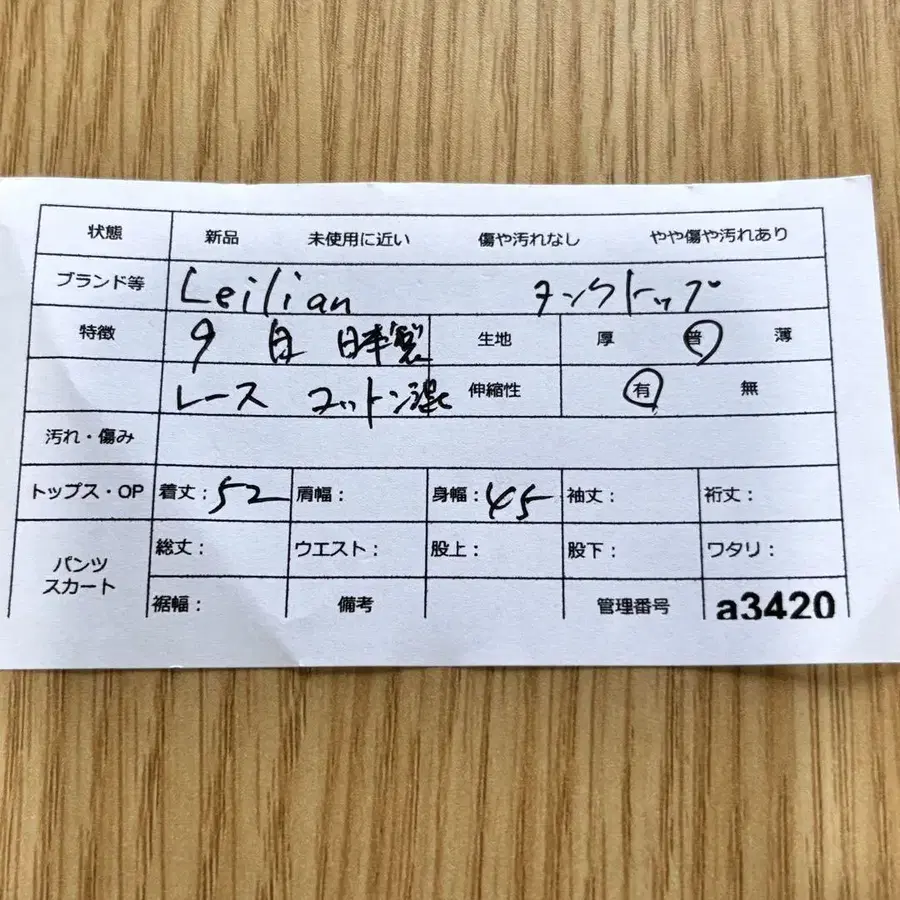 状態 新品 未使用に近い 傷や汚れなし やや傷や汚れあり
ブランド等 Leilian タンクトップ
特徴 9 白 日本製 生地 厚 普 薄
レース コットン混 伸縮性 有 無
汚れ・傷み
トップス・OP 着丈：52 肩幅： 身幅：45 袖丈： 裄丈：
パンツ スカート 総丈： ウエスト： 股上： 股下： ワタリ：
裾幅： 備考 管理番号 a3420